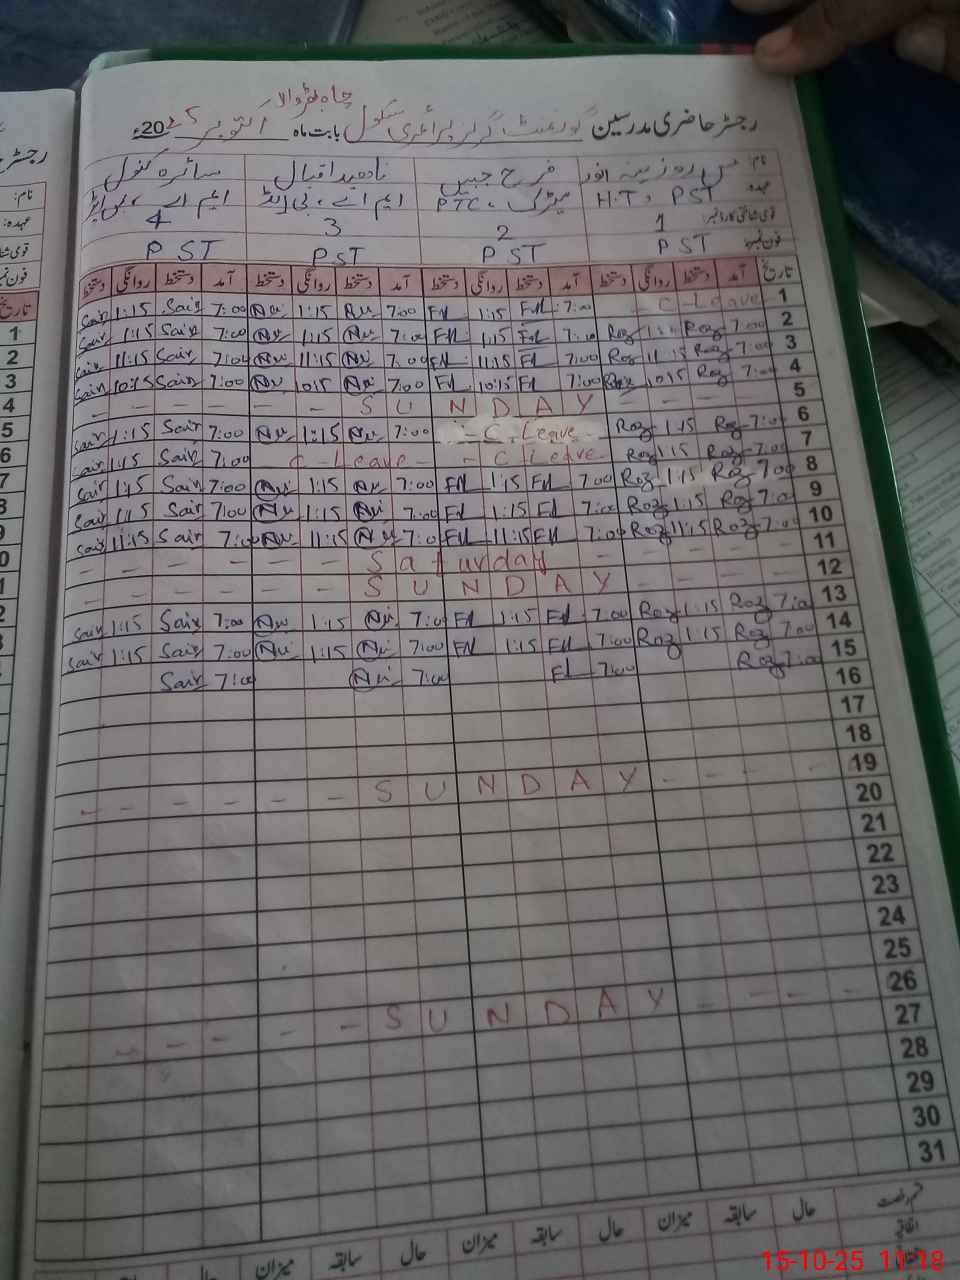 چاہ بھڑوالا
رجسٹر حاضری مدرسین گورنمنٹ گرلز پرائمری سکول بابت ماہ اکتوبر 2025ء
نام: مس روزینہ انور فرح جبیں ناہید اقبال سائرہ کنول
عہدہ H.T, PST میٹرک، PTC ایم اے، بی ایڈ ایم اے، بی ایڈ
قومی شناختی کارڈ نمبر 1 2 3 4
فون نمبر PST PST PST PST
تاریخ آمد دستخط روانگی دستخط آمد دستخط روانگی دستخط آمد دستخط روانگی دستخط آمد دستخط روانگی دستخط
1 C-Leave 7:00 Fd 1:15 Fd 7:00 Nu 1:15 Nu 7:00 Sair 1:15 Sair
2 7:00 Roz 1:15 Roz 7:00 Fd 1:15 Fd 7:00 Nu 1:15 Nu 7:00 Sair 1:15 Sair
3 7:00 Roz 11:15 Roz 7:00 Fd 11:15 Fd 7:00 Nu 11:15 Nu 7:00 Sair 11:15 Sair
4 7:00 Roz 10:15 Roz 7:00 Fd 10:15 Fd 7:00 Nu 10:15 Nu 7:00 Sair 10:15 Sair
5 - - - - S U N D A Y - - - - - -
6 7:00 Roz 1:15 Roz - C. Leave - 7:00 Nu 1:15 Nu 7:00 Sair 1:15 Sair
7 7:00 Roz 1:15 Roz - C Leave C-Leave - 7:00 Sair 1:15 Sair
8 7:00 Roz 1:15 Roz 7:00 Fd 1:15 Fd 7:00 Nu 1:15 Nu 7:00 Sair 1:15 Sair
9 7:00 Roz 1:15 Roz 7:00 Fd 1:15 Fd 7:00 Nu 1:15 Nu 7:00 Sair 1:15 Sair
10 7:00 Roz 11:15 Roz 7:00 Fd 11:15 Fd 7:00 Nu 11:15 Nu 7:00 Sair 11:15 Sair
11 - - - - - Saturday - - - - - -
12 - - - - S U N D A Y - - - - - -
13 7:00 Roz 1:15 Roz 7:00 Fd 1:15 Fd 7:00 Nu 1:15 Nu 7:00 Sair 1:15 Sair
14 7:00 Roz 1:15 Roz 7:00 Fd 1:15 Fd 7:00 Nu 1:15 Nu 7:00 Sair 1:15 Sair
15 7:00 Roz 7:00 Fd 7:00 Nu 7:00 Sair
16
17
18
19 - - - - S U N D A Y - - - - - -
20
21
22
23
24
25
26 - - - - S U N D A Y - - - - - -
27
28
29
30
31
قسم رخصت حال سابقہ میزان حال سابقہ میزان حال سابقہ میزان حال
اتفاقیہ
15-10-25 11:18